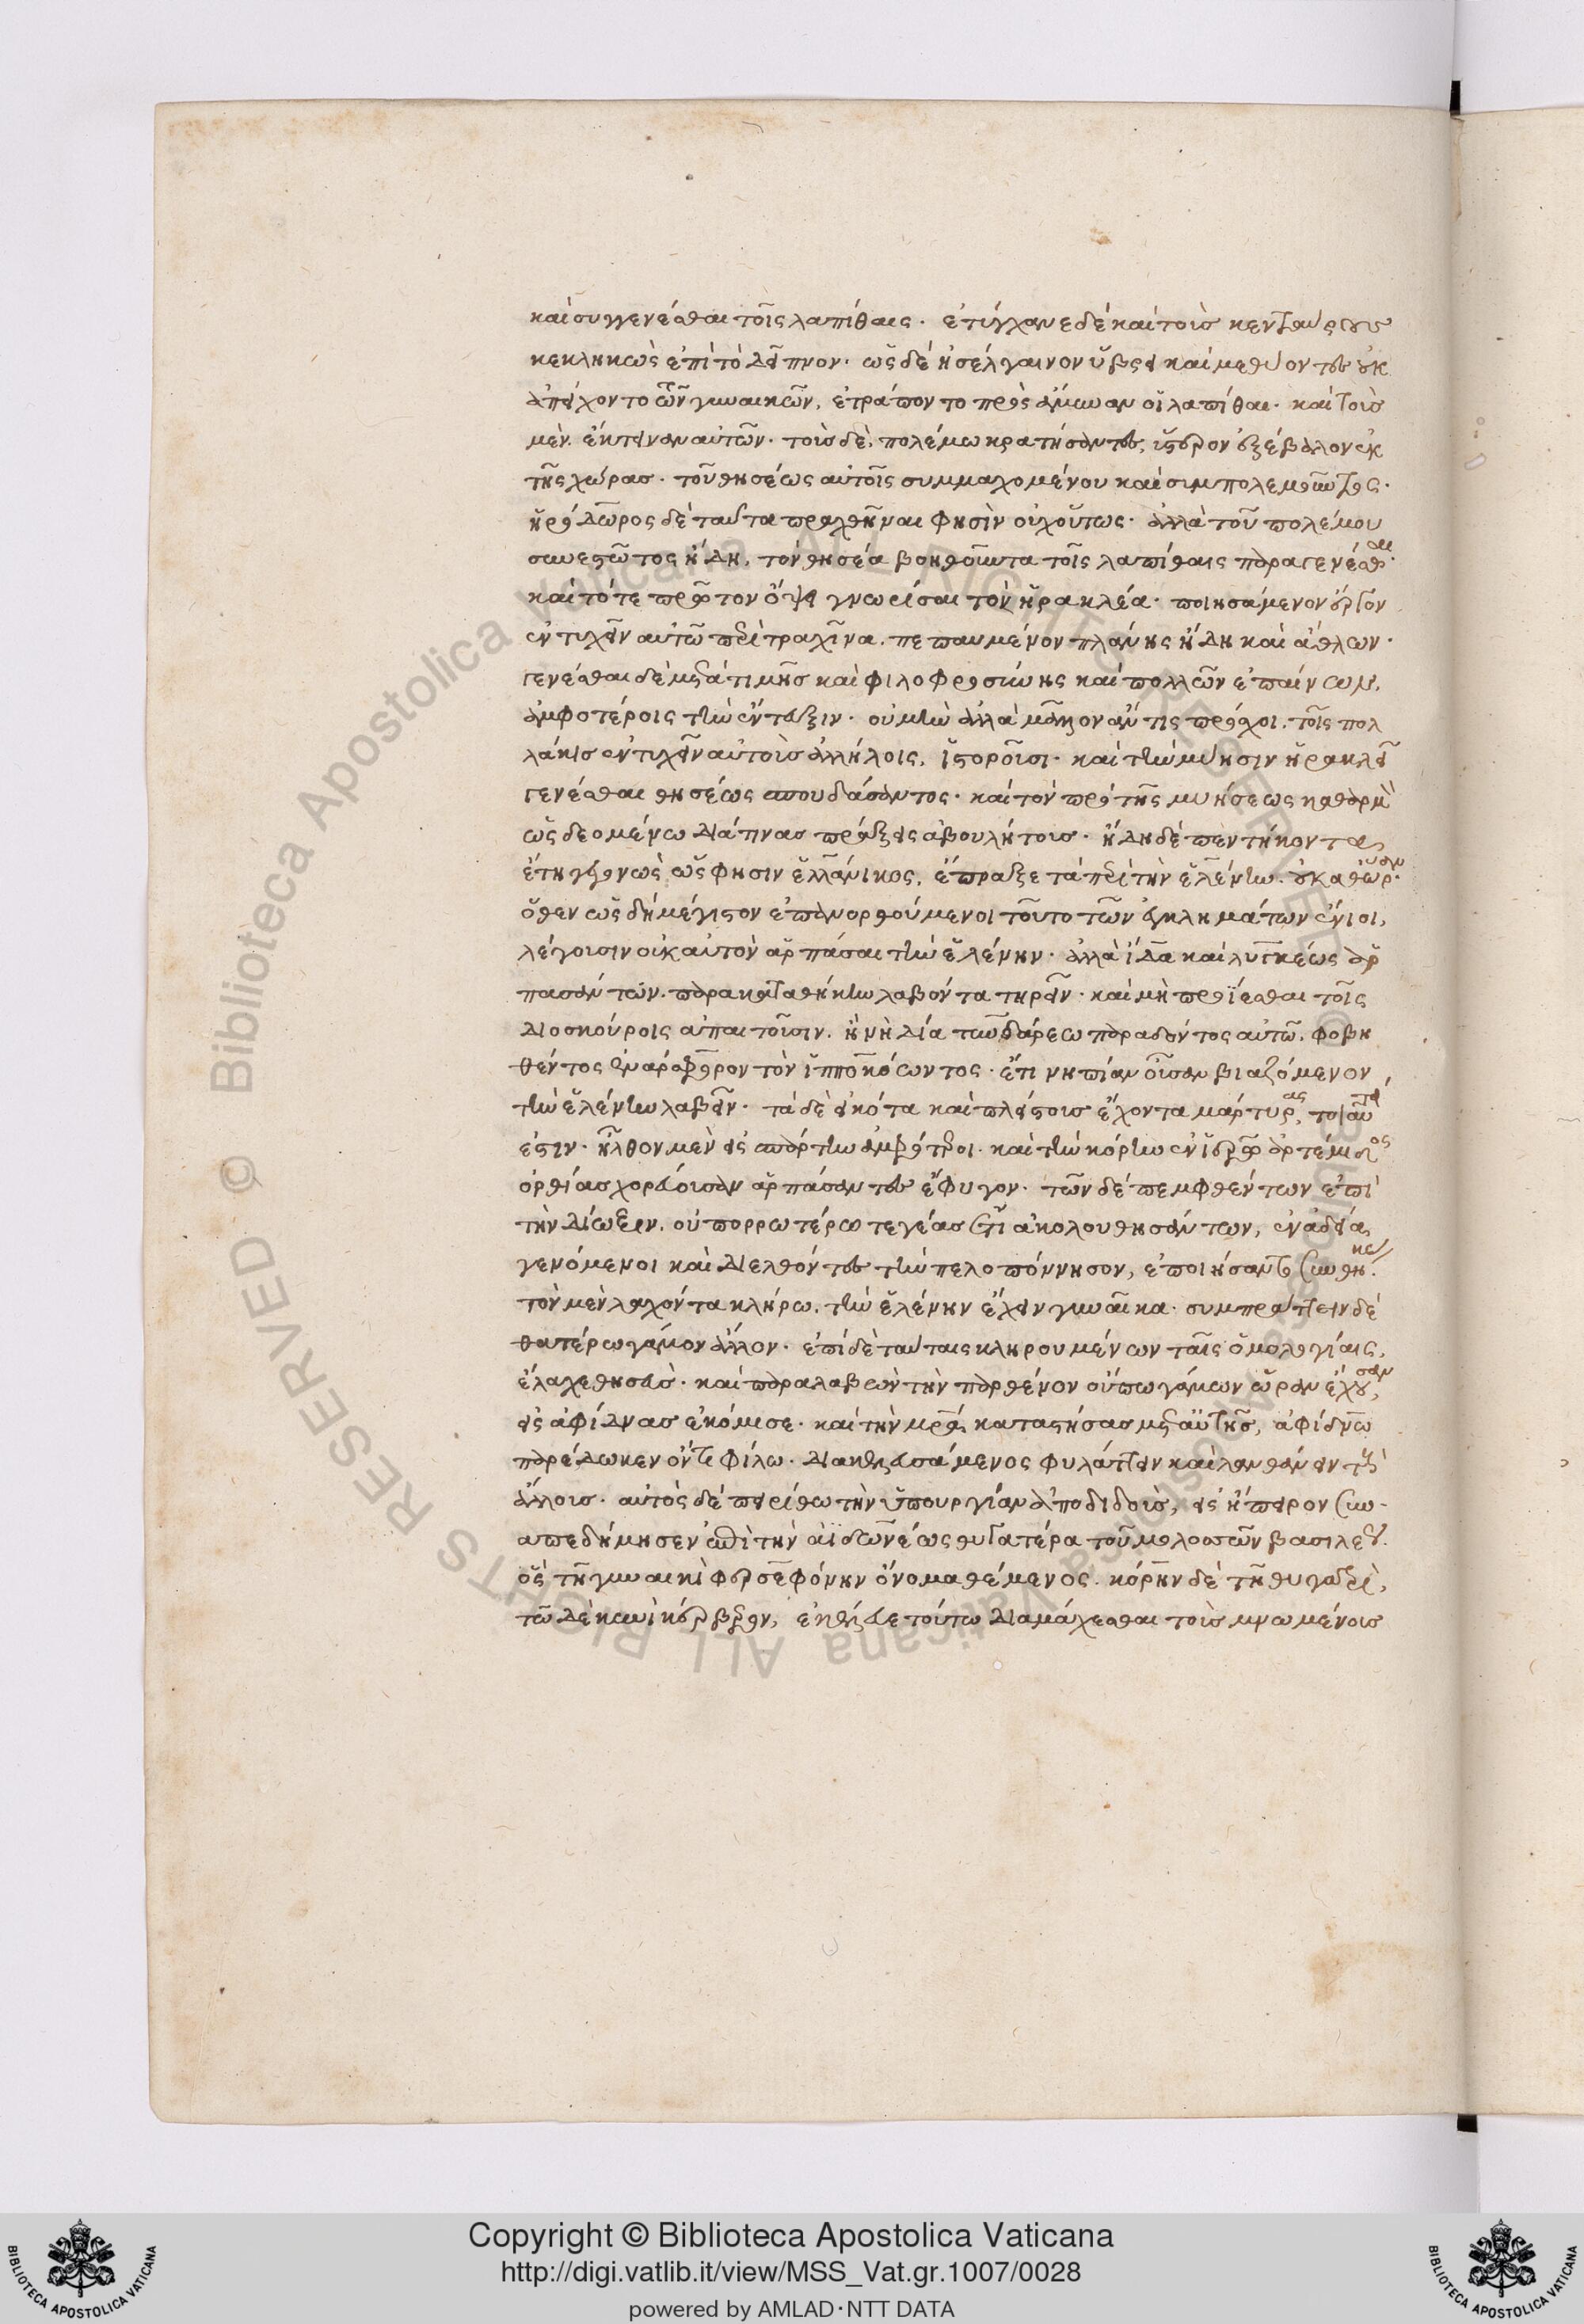 καὶ συγγενέσθαι τοῖς λαπίθαις· ἐτύγχανε δὲ καὶ τοὺς κενταύρους
κεκληκὼς ἐπὶ τὸ δεῖπνον· ὡς δὲ ἠσέλγαινον ὕβρει καὶ μεθύοντες οὐκ
ἀπείχοντο τῶν γυναικῶν, ἐτράποντο πρὸς ἄμυναν οἱ λαπίθαι· καὶ τοὺς
μὲν ἔκτειναν αὐτῶν· τοὺς δὲ, πολέμω κρατήσαντες, ὕστερον ἐξέβαλον ἐκ
τῆς χώρας· τοῦ θησέως αὐτοῖς συμμαχομένου καὶ συμπολεμοῦντος·
ἡρόδωρος δὲ ταῦτα πραχθῆναι φησὶν οὐχ οὕτως· ἀλλὰ τοῦ πολέμου
συνεστῶτος ἤδη, τὸν θησέα βοηθοῦντα τοῖς λαπίθαις παραγενέσθαι·
καὶ τότε πρῶτον ὄψει γνωρίσαι τὸν ἡρακλέα· ποιησάμενον ἔργον
ἐντυχεῖν αὐτῶ περὶ τραχῖνα, πεπαυμένον πλάνης ἤδη καὶ ἄθλων·
γενέσθαι δὲ μετὰ τιμῆς καὶ φιλοφροσύνης καὶ πολλῶν ἐπαίνων,
ἀμφοτέροις τὴν ἔντευξιν· οὐ μὴν ἀλλὰ μᾶλλον ἄν τις προσέχοι, τοῖς πολ
λάκις ἐντυχεῖν αὐτοὺς ἀλλήλοις, ἱστοροῦσι· καὶ τὴν μύησιν ἡρακλεῖ
γενέσθαι θησέως σπουδάσαντος· καὶ τὸν πρὸ τῆς μυήσεως καθαρμὸν
ὡς δεομένω διά τινας πράξεις ἀβουλήτους· ἤδη δὲ πεντήκοντα
ἔτη γεγονὼς ὥς φησιν ἑλλάνικος, ἔπραξε τὰ περὶ τὴν ἑλένην, οὐ καθ' ὥραν·
ὅθεν ὡς δὴ μέγιστον ἐπανορθούμενοι τοῦτο τῶν ἐγκλημάτων ἔνιοι,
λέγουσιν οὐκ αὐτὸν ἁρπάσαι τὴν ἑλένην· ἀλλὰ ἴδα καὶ λυγκέως ἁρ
πασάντων, παρακαταθήκην λαβόντα τηρεῖν· καὶ μὴ προΐεσθαι τοῖς
διοσκούροις ἀπαιτοῦσιν, ἢ νὴ δία τυνδάρεω παραδόντος αὐτῶ, φοβη
θέντος ἐναρσφόρον τὸν ἱπποκόωντος· ἔτι νηπίαν οὖσαν βιαζόμενον
τὴν ἑλένην λαβεῖν· τὰ δὲ εἰκότα καὶ πλείστους ἔχοντα μάρτυρας, τοιαῦτά
ἐστιν· ἦλθον μὲν εἰς σπάρτην ἀμφότεροι· καὶ τὴν κόρην ἐν ἱερῶ ἀρτέμιδος
ὀρθίας χορεύουσαν ἁρπάσαντες ἔφυγον· τῶν δὲ πεμφθέντων ἐπὶ
τὴν δίωξιν, οὐ πορρωτέρω τεγέας ἐπακολουθησάντων, ἐν ἀδείᾳ
γενόμενοι καὶ διελθόντες τὴν πελοπόννησον, ἐποιήσαντο συνθήκας
τὸν μὲν λαχόντα κλήρω, τὴν ἑλένην ἔχειν γυναῖκα· συμπράττειν δὲ
θατέρω γάμον ἄλλον· ἐπὶ δὲ ταύταις κληρουμένων ταῖς ὁμολογίαις,
ἔλαχε θησεὺς· καὶ παραλαβὼν τὴν παρθένον οὔπω γάμων ὥραν ἔχουσαν,
εἰς ἀφίδνας ἐκόμισε· καὶ τὴν μητέρα καταστήσας μετ' αὐτῆς, ἀφίδνω
παρέδωκεν ὄντι φίλω· διακελευσάμενος φυλάττειν καὶ λανθάνειν τοὺς
ἄλλους· αὐτὸς δὲ πειρίθω τὴν ὑπουργίαν ἀποδιδοὺς, εἰς ἤπειρον συν
απεδήμησεν ἐπὶ τὴν ἀϊδωνέως θυγατέρα τοῦ μολοσσῶν βασιλέως
ὃς τῆ γυναικὶ φερσεφόνην ὄνομα θέμενος, κόρην δὲ τῆ θυγατρὶ,
τῶ δὲ κυνὶ κέρβερον, ἐκέλευε τούτω διαμάχεσθαι τοὺς μνωμένους
Copyright © Biblioteca Apostolica Vaticana
http://digi.vatlib.it/view/MSS_Vat.gr.1007/0028
powered by AMLAD·NTT DATA